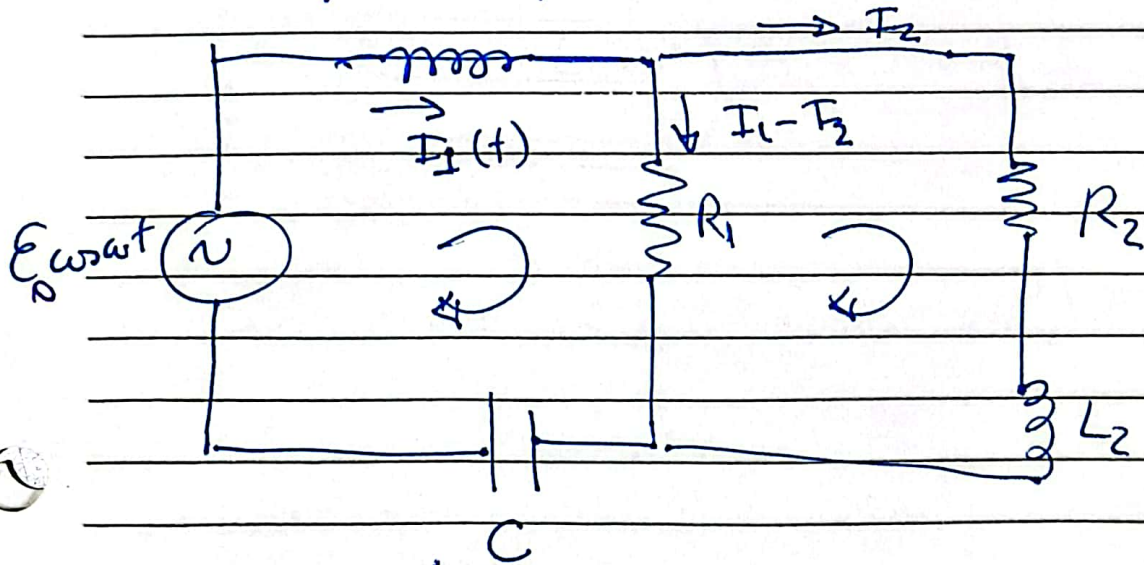 I₂
I₁(t)
I₁-I₂
ε₀cosωt
~
R₁
R₂
L₂
C